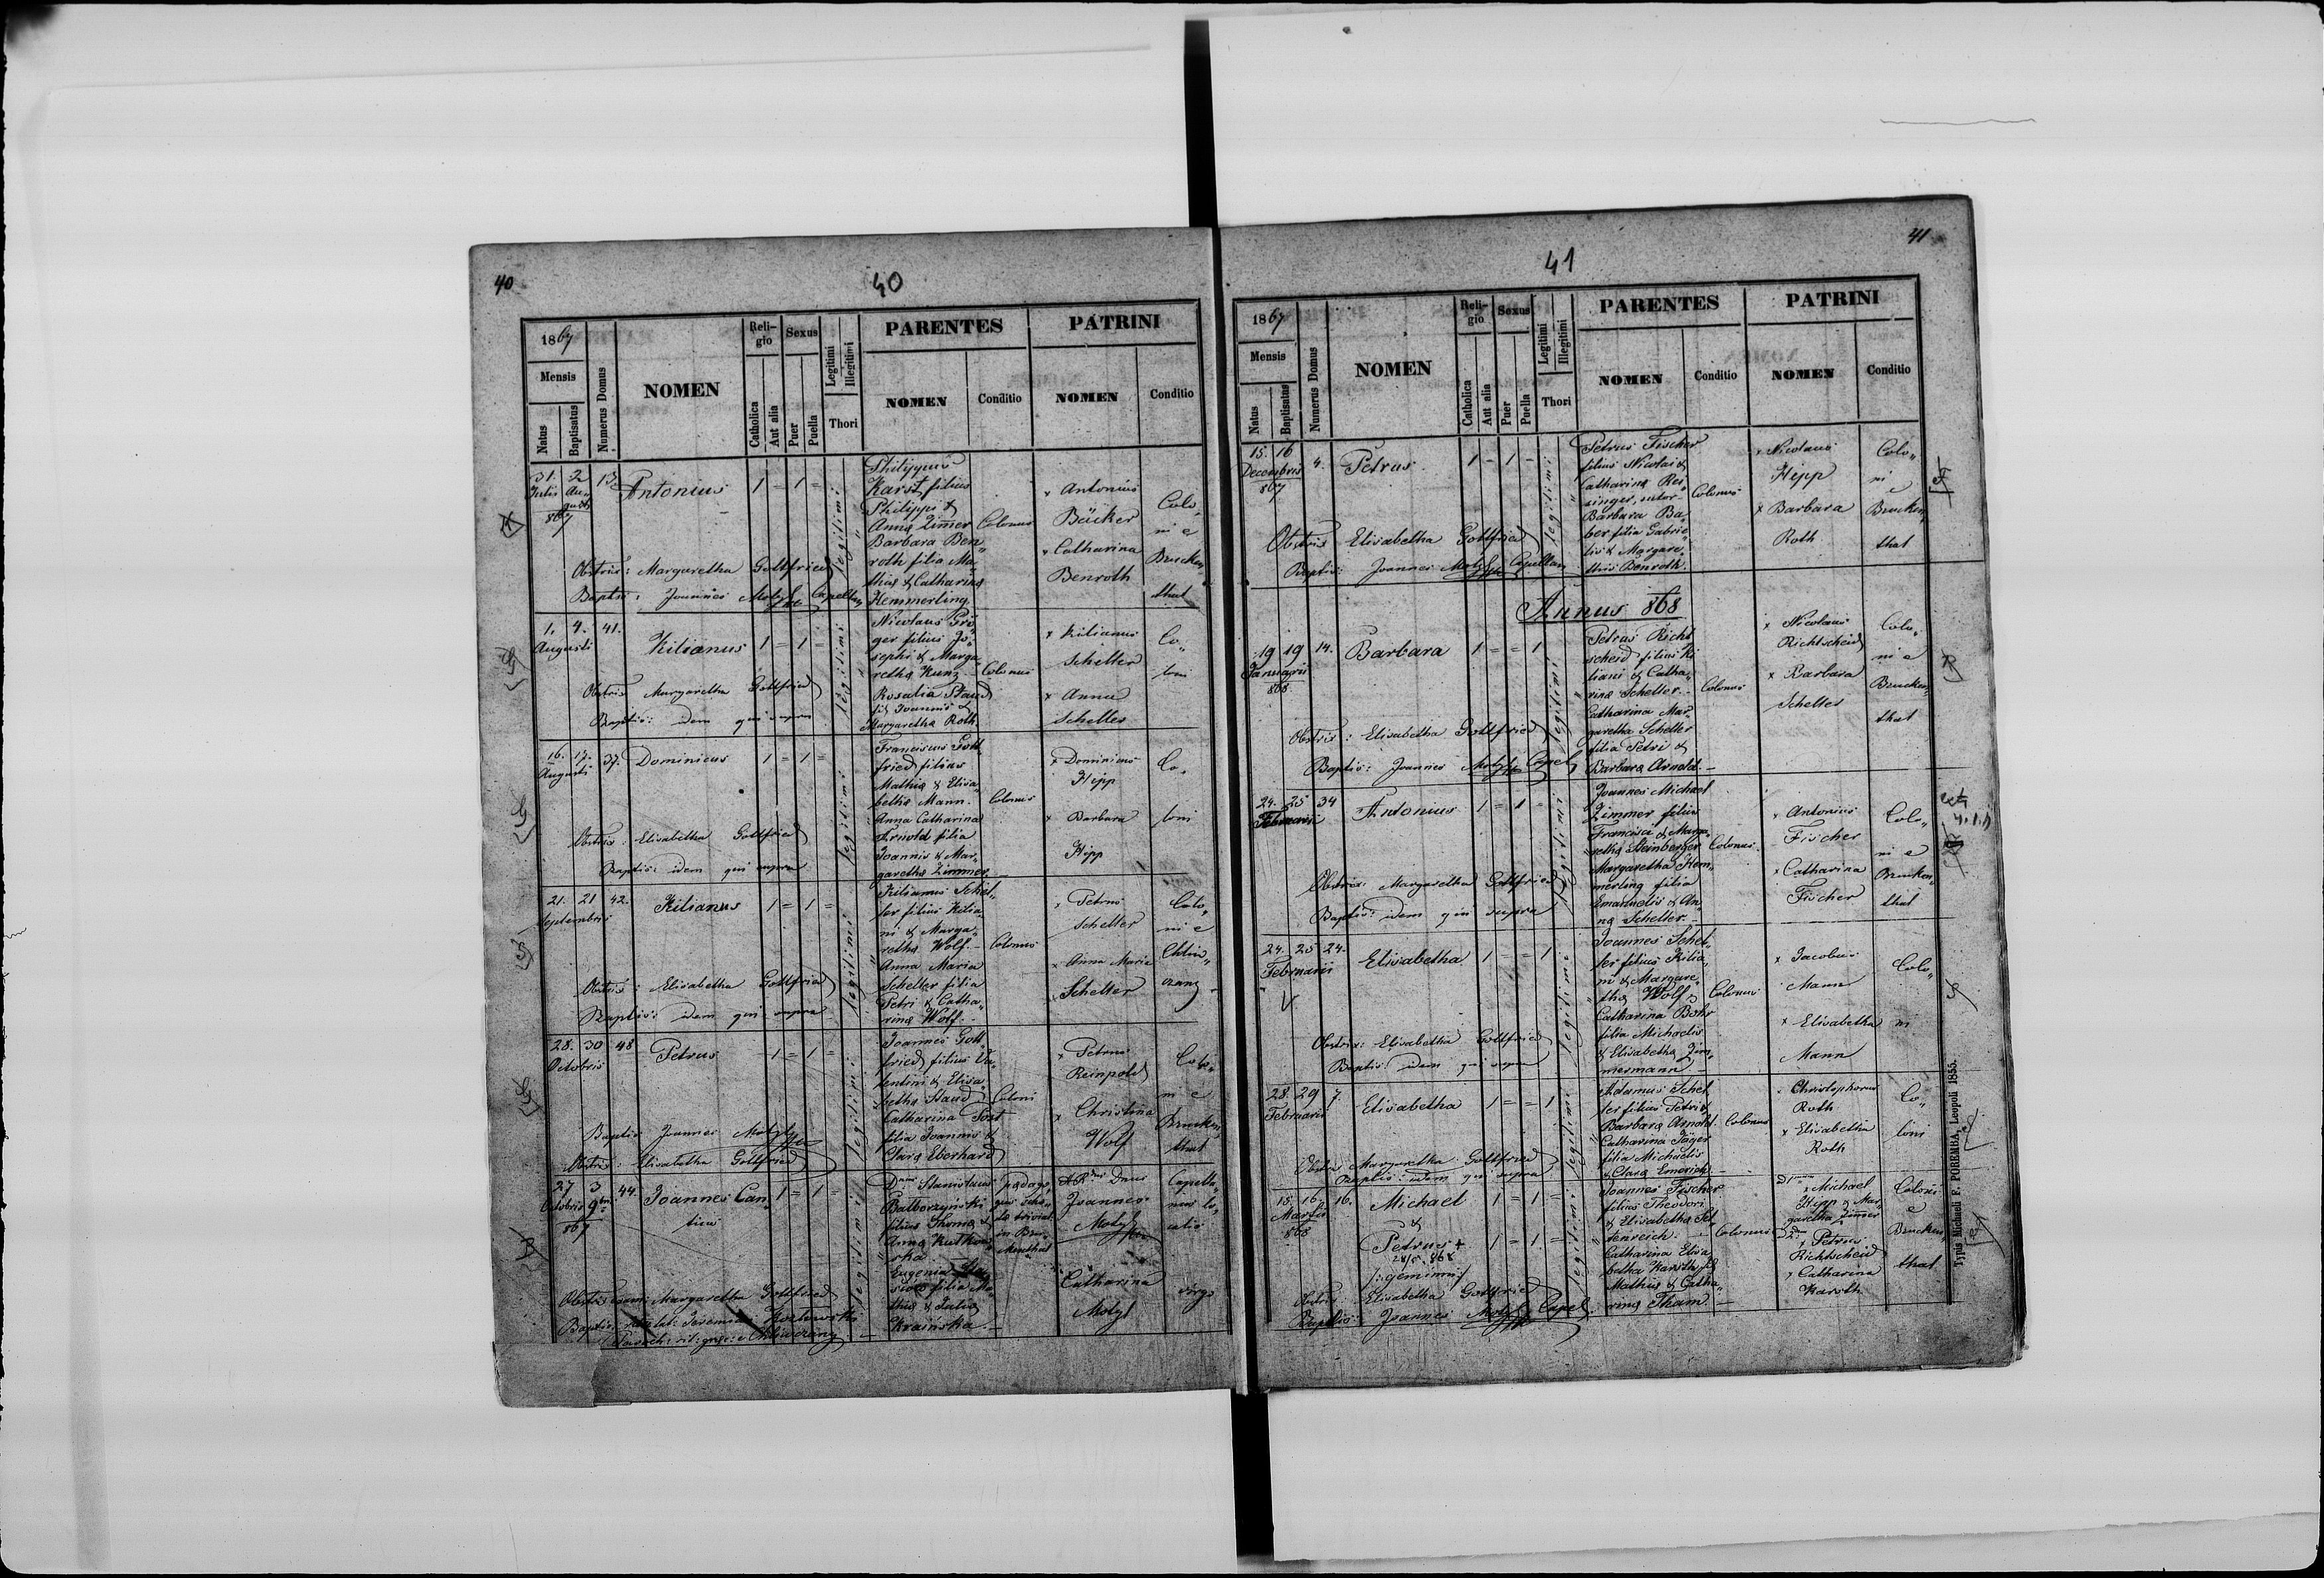 40
40
1867
Mensis
Natus
Baptisatus
Numerus Domus
NOMEN
Reli-
gio
Catholica
Aut alia
Sexus
Puer
Puella
Legitimi
Illegitimi
Thori
PARENTES
NOMEN
Conditio
PATRINI
NOMEN
Conditio
31. 2 13.
Julii Au„
gusti
867
Antonius
1 = 1 =
legitimi
Philippus
Karst filius
Philippi &
Anna Zimer
Barbara Ben„
roth filia Ma„
thia & Catharina
Hemmerling
Colonus
Antonius
Bäcker
Catharina
Benroth
Colo„
ni e
Brucken„
thal
Obstris: Margaretha Gottfried
Baptis: Joannes Motyl Capellan
1. 4. 41.
Augusti
Kilianus
1 = 1 =
legitimi
Nicolaus Prö„
ger filius Jo„
sephi & Marga„
retha Kunz
Rosalia Staud
fil Joannis &
Margaretha Roth
Colonus
Kilianus
Scheller
Anna
Scheller
Co„
loni
Obstris Margaretha Gottfried
Baptis: idem qui supra
16. 17. 37.
Augusti
Dominicus
1 = 1 =
legitimi
Franciscus Gott„
fried filius
Mathia & Elisa„
betha Mann.
Anna Catharina
Arnold filia
Joannis & Mar„
garetha Zimmer
Colonus
Dominicus
Hipp
Barbara
Hipp
Co„
loni
Obstris: Elisabetha Gottfried
Baptis: idem qui supra
21. 21 42.
Septembris
Kilianus
1 = 1 =
legitimi
Kilianus Schel„
ler filius Kilia„
ni & Marga„
retha Wolf.
Anna Maria
Scheller filia
Petri & Catha„
rina Wolf.
Colonus
Petrus
Scheller
Anna Maria
Scheller
Colo„
ni e
Chliw„
czany
Obstris: Elisabetha Gottfried
Baptis: idem qui supra
28. 30 48
Octobris
Petrus
1 = 1 =
legitimi
Joannes Gott„
fried filius Va„
lentini & Elisa„
betha Staud
Catharina
filia Joannis &
Clara Eberhard
Coloni
Petrus
Reinpold
Christina
Wolf
Colo„
ni e
Brucken„
thal
Baptis Joannes Motyl
Obstris: Elisabetha Gottfried
27 3 44.
Octobris 9bris
867
Joannes Can„
tius
1 = 1 =
legitimi
Stanislaus
filius Thoma &
Anna
Eugenia
filia
& Julia
Kraińska
in Bru„
kenthal
Joannes
Motyl
Catharina
Motyl
virgo
Obstris Margaretha Gottfried
Kozłowski
41
41
1867
Mensis
Natus
Baptisatus
Numerus Domus
NOMEN
Reli-
gio
Catholica
Aut alia
Sexus
Puer
Puella
Legitimi
Illegitimi
Thori
PARENTES
NOMEN
Conditio
PATRINI
NOMEN
Conditio
15. 16 4.
Decembris
867
Petrus
1 - 1 -
legitimi
Petrus Fischer
filius Nicolai &
Catharina Rei„
singer, uxor
Barbara Ba„
ber filia Gabrie„
lis & Margare„
tha Benroth.
Colonus
Nicolaus
Hipp
Barbara
Roth
Colo„
ni e
Brucken„
thal
Obstris Elisabetha Gottfried
Baptis: Joannes Motyl Capellan
Annus 868
19 19 14.
Januarii
868
Barbara
1 = = 1
legitimi
Petrus Richt
scheid filius Ki
liani & Catha„
rina Scheller.
Catharina Mar„
garetha Scheller
filia Petri &
Barbara Arnold
Colonus
Nicolaus
Richtscheid
Barbara
Scheller
Colo„
ni e
Brucken„
thal
Obstris: Elisabetha Gottfried
Baptis: Joannes Motyl Capel
24. 25 34
Februarii
Antonius
1 = 1 =
legitimi
Joannes Michael
Zimmer filius
Francisci & Marga„
retha Steinberger
Margaretha Hem„
merling filia
Emanuelis & An„
na Scheller.
Colonus
Antonius
Fischer
Catharina
Fischer
Colo„
ni e
Brucken„
thal
Obstris: Margaretha Gottfried
Baptis: idem qui supra
24. 25 24.
Februarii
Elisabetha
1 = = 1
legitimi
Joannes Schel„
ler filius Kilia„
ni & Margare„
tha Wolf
Catharina Bohr
filia Michaelis
& Elisabetha Zim„
mermann
Colonus
Jacobus
Mann
Elisabetha
Mann
Colo„
ni
Obstris: Elisabetha Gottfried
Baptis: idem qui supra
28. 29 7.
Februarii
Elisabetha
1 = = 1
legitimi
Adamus Schel
ler filius Petri &
Barbara Arnold.
Catharina Jäger
filia Michaelis
& Clara Emerich
Colonus
Christophorus
Roth
Elisabetha
Roth
Co„
loni
Obstris Margaretha Gottfried
Baptis: idem qui supra
15. 16. 16.
Martii
868
Michael
&
Petrus +
28/5 868
/: gemini :/
1 = 1 =
1 = 1 =
legitimi
Joannes Fischer
filius Theodori
& Elisabetha Gel„
tenreich.
Catharina Elisa„
betha Karsth fil
Mathia & Catha„
rina Tham.
Colonus
Michael
Hipp & Mar„
garetha Zimmer
Petrus
Richtscheid
Catharina
Karsth
Coloni
e
Brucken„
thal
Obstris Elisabetha Gottfried
Baptis: Joannes Motyl Capel
Typis Michaeli F. POREMBA, Leopoli 1855.